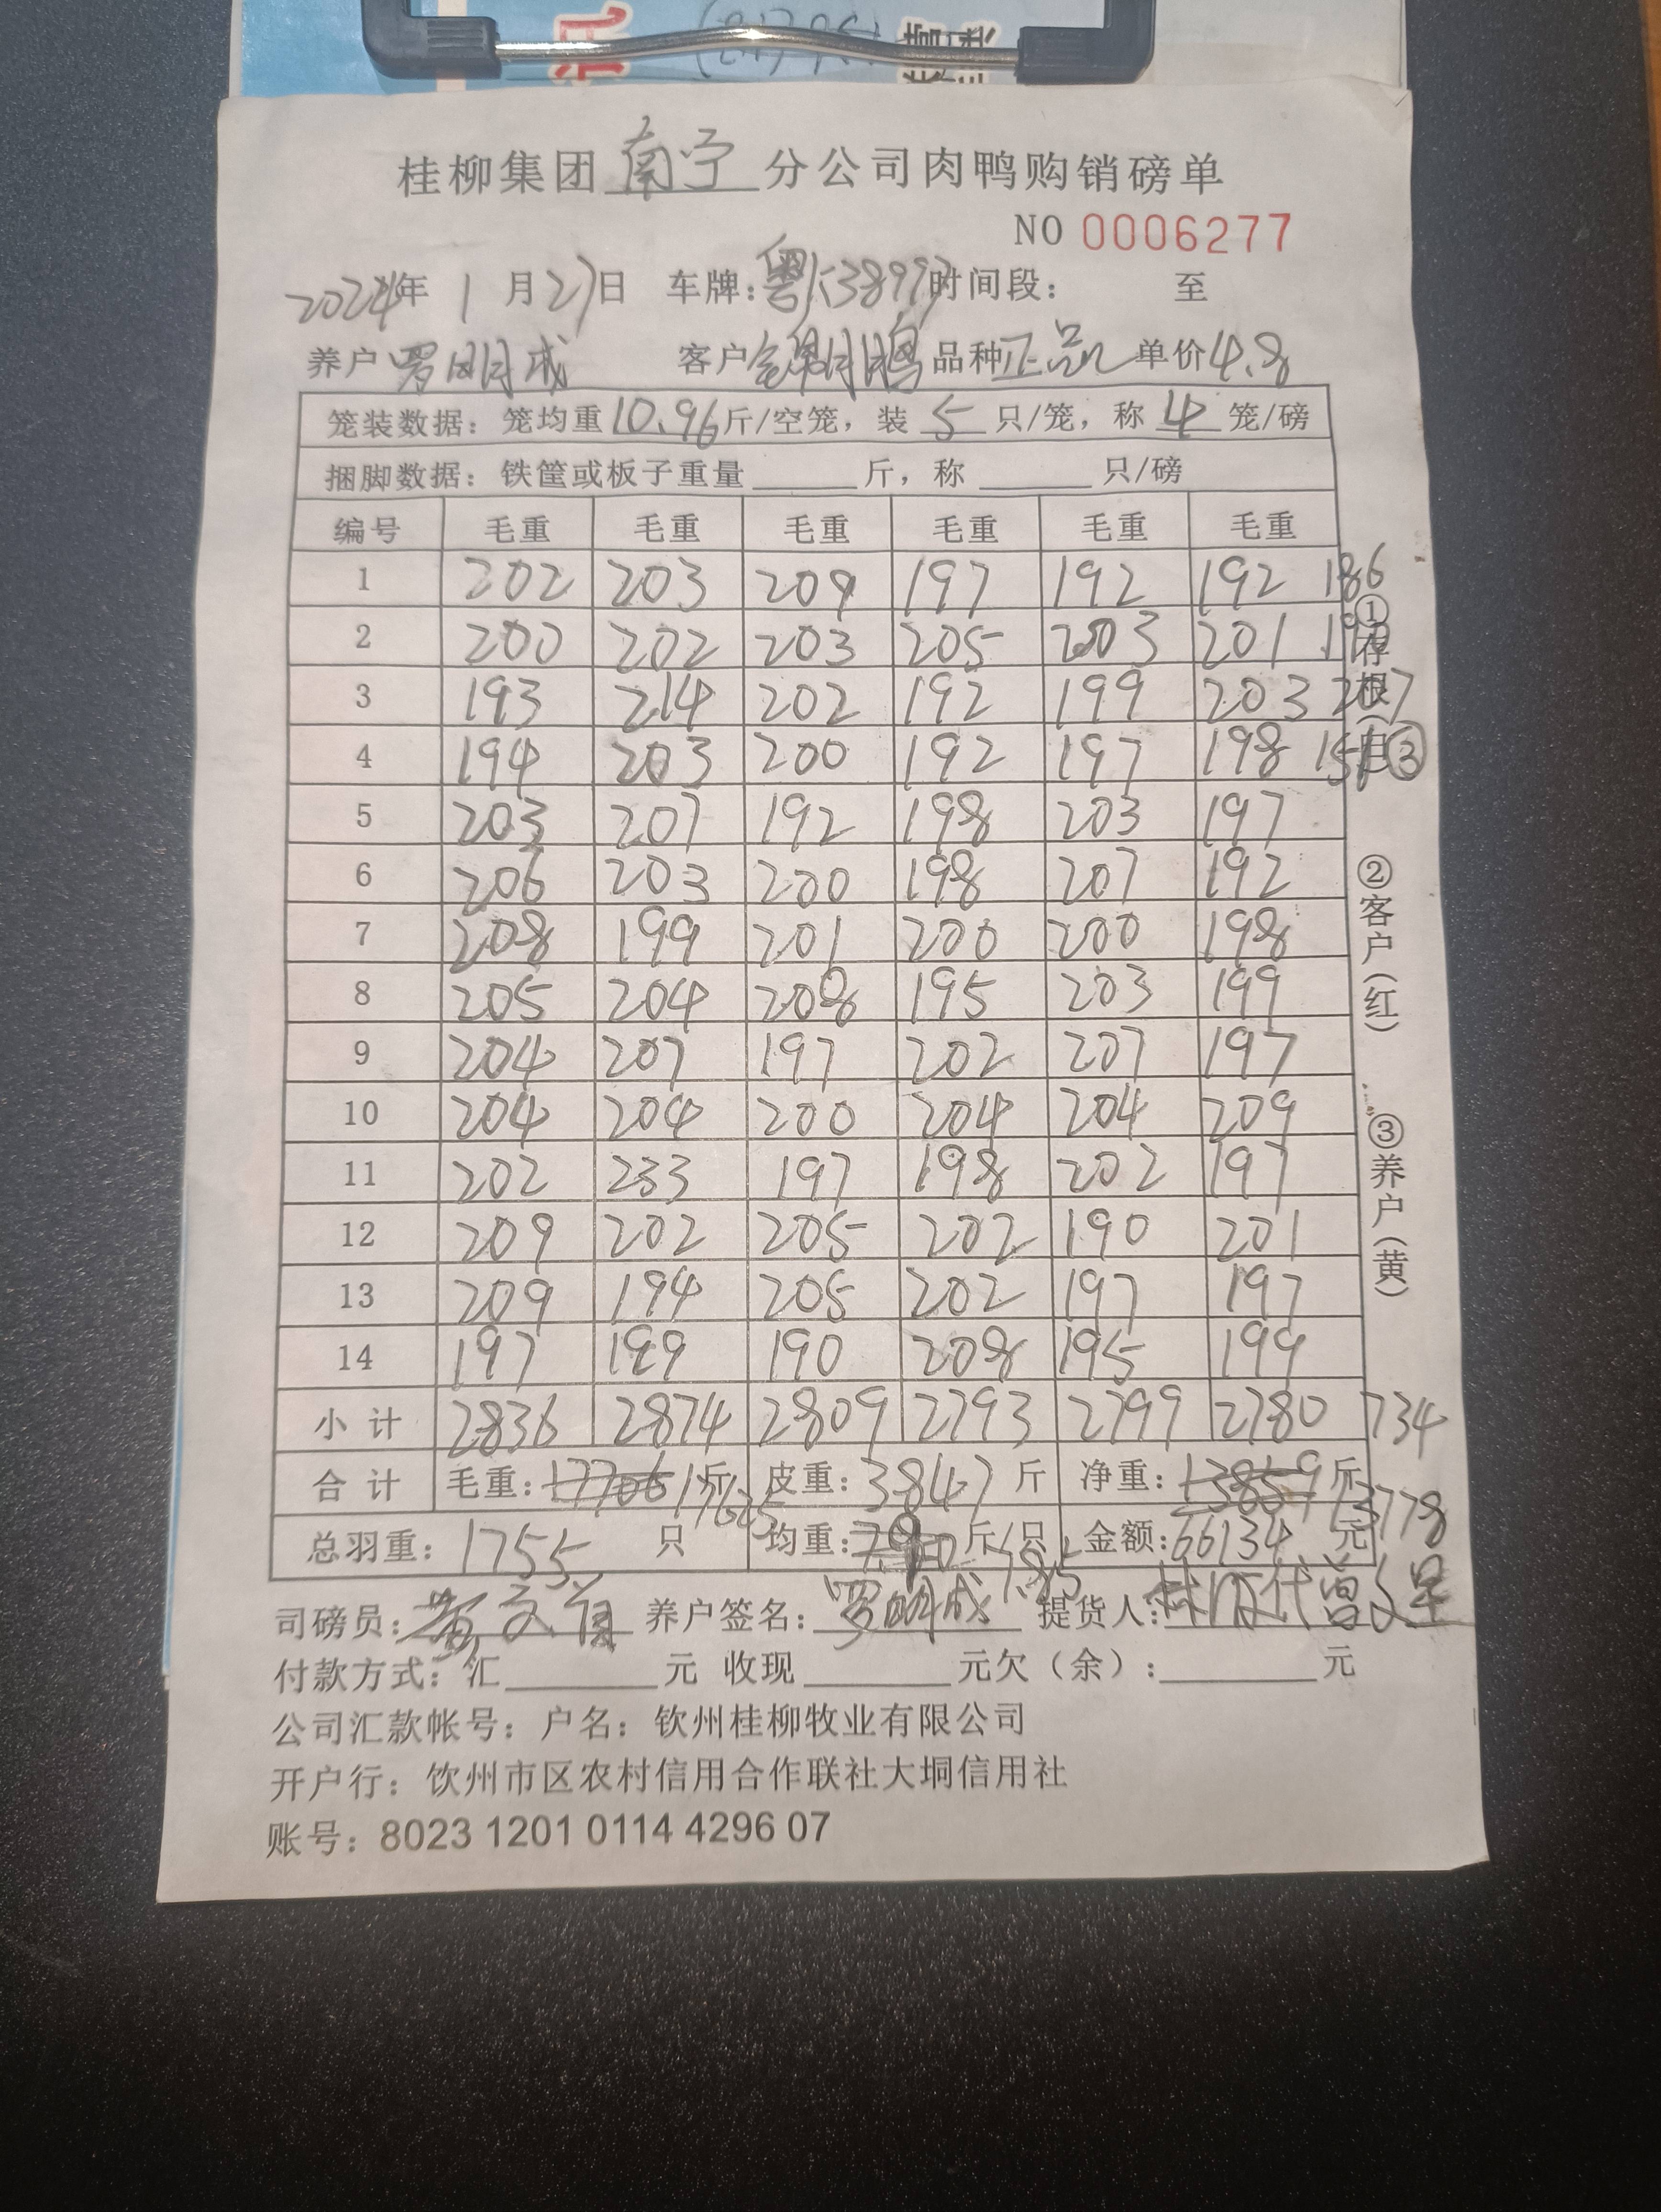 桂柳集团南宁分公司肉鸭购销磅单
NO 0006277
2024年 1 月 27 日 车牌: 时间段: 至
养户 罗明成 客户 品种 正品 单价 4.8
笼装数据: 笼均重 10.96 斤/空笼, 装 5 只/笼, 称 4 笼/磅
捆脚数据: 铁筐或板子重量 斤, 称 只/磅
编号 毛重 毛重 毛重 毛重 毛重 毛重
1 202 203 209 197 192 192 186
2 200 202 203 205 203 201 190
3 193 214 202 192 199 203 207
4 194 203 200 192 197 198 151 ③
5 203 207 192 198 203 197
6 206 203 200 198 207 192
7 208 199 201 200 200 198
8 205 204 208 195 203 199
9 204 207 197 202 207 197
10 204 204 200 204 204 209
11 202 233 197 198 202 197
12 209 202 205 202 190 201
13 209 194 205 202 197 197
14 197 199 190 208 195 199
小计 2836 2874 2809 2793 2799 2780 734
合计 毛重: 17706 斤 17625 皮重: 3847 斤 净重: 13859 斤 13778
总羽重: 1755 只 均重: 斤/只 7.85 金额: 66134 元
司磅员: 养户签名: 罗明成 提货人:
付款方式: 汇 元 收现 元欠(余): 元
公司汇款帐号: 户名: 钦州桂柳牧业有限公司
开户行: 饮州市区农村信用合作联社大垌信用社
账号: 8023 1201 0114 4296 07
①存根(白)
②客户(红)
③养户(黄)